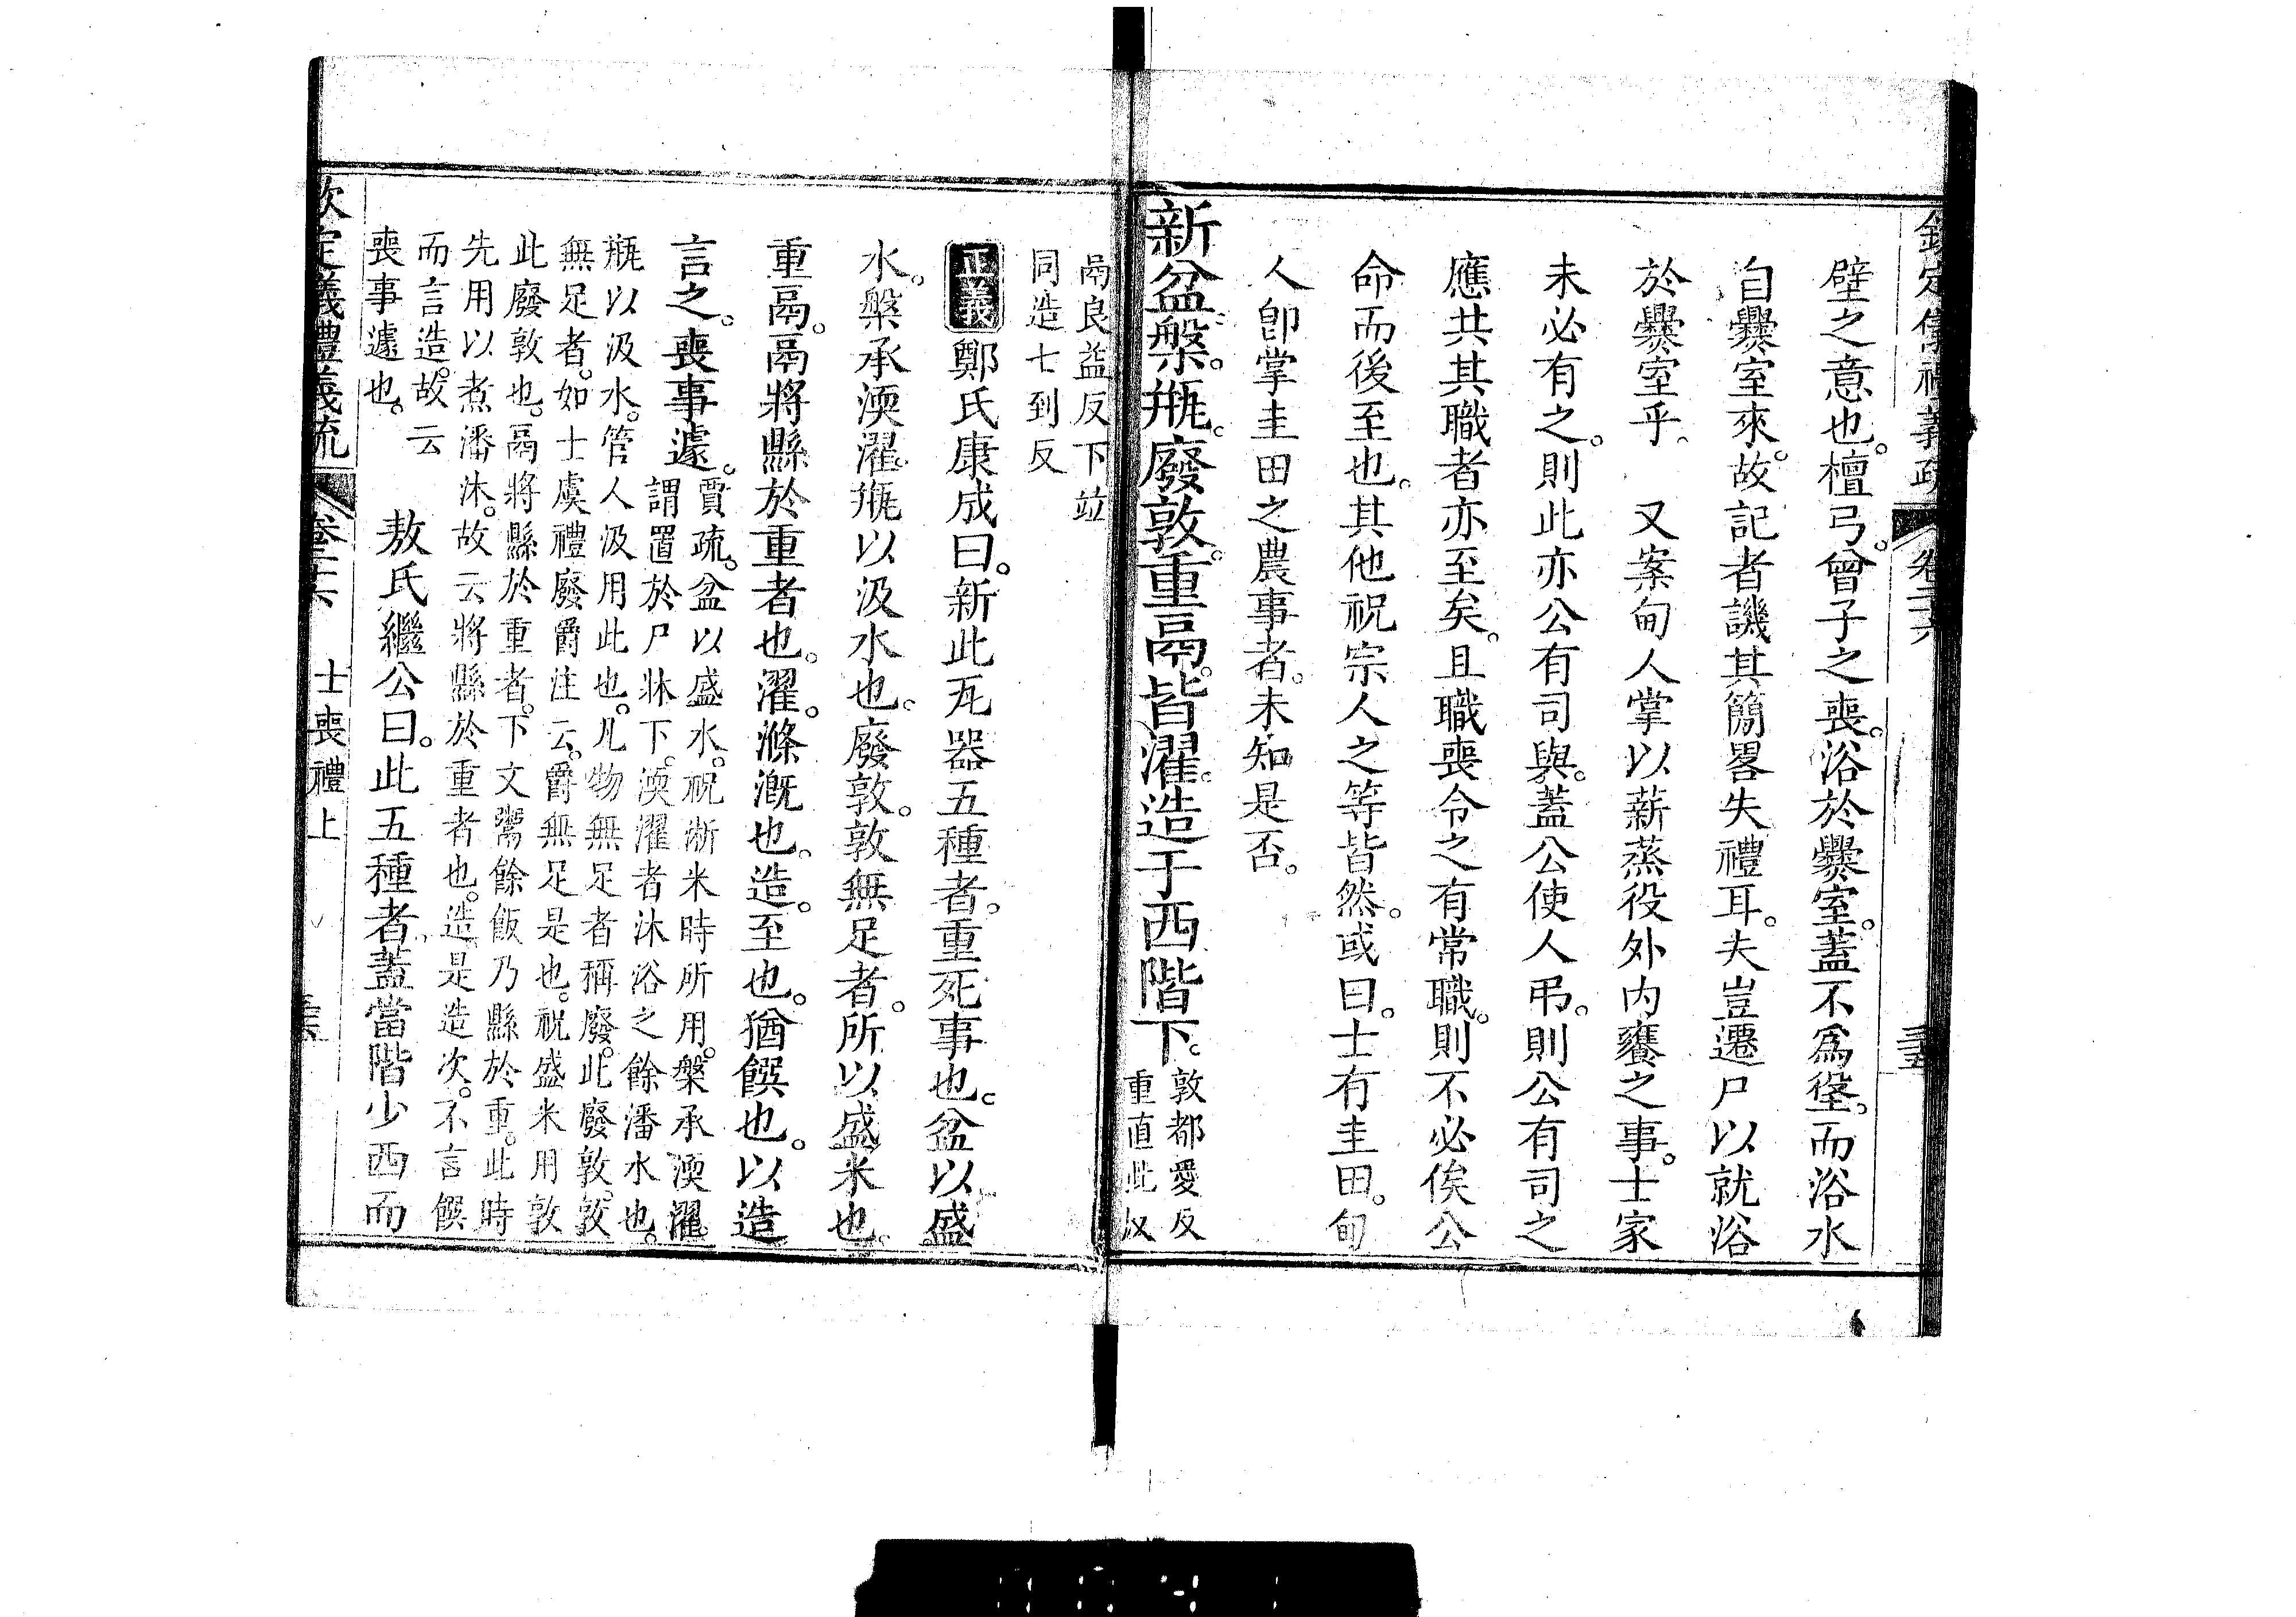 欽定儀禮義疏 卷二十六
壁之意也。檀弓。曾子之喪。浴於爨室。蓋不爲垼。而浴水
自爨室來。故記者譏其簡畧失禮耳。夫豈遷尸以就浴
於爨室乎。 又案甸人掌以薪蒸役外內饔之事。士家
未必有之。則此亦公有司與。蓋公使人弔。則公有司之
應共其職者亦至矣。且職喪令之有常職。則不必俟公
命而後至也。其他祝宗人之等皆然。或曰。士有圭田。甸
人卽掌圭田之農事者。未知是否。
新盆。槃。甁。廢敦。重鬲。皆濯。造于西階下。
敦都愛反
重直此及
鬲良益反下竝
同造七到反
正義 鄭氏康成曰。新此瓦器五種者。重死事也。盆以盛
水。槃承渜濯。甁以汲水也。廢敦。敦無足者。所以盛米也。
重鬲。鬲將縣於重者也。濯。滌漑也。造。至也。猶饌也。以造
言之。喪事遽。
賈疏。盆以盛水。祝淅米時所用。槃承渜濯。
謂置於尸牀下。渜濯者沐浴之餘潘水也。
甁以汲水。管人汲用此也。凡物無足者稱廢。此廢敦。敦
無足者。如士虞禮廢爵注云。爵無足是也。祝盛米用敦
此廢敦也。鬲將縣於重者。下文鬻餘飯乃縣於重。此時
先用以煮潘沐。故云將縣於重者也。造是造次。不言饌
而言造。故云
喪事遽也。
敖氏繼公曰。此五種者。蓋當階少西而
欽定儀禮義疏 卷二十六 士喪禮上